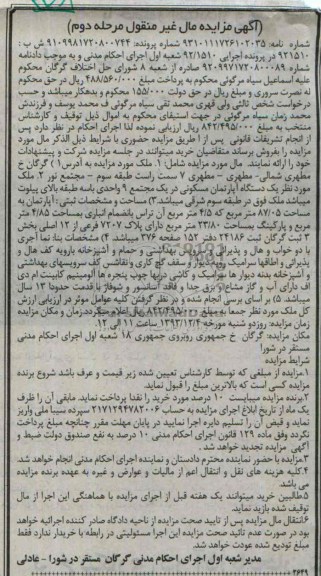 (آگهی مزایده مال غیر منقول مرحله دوم)
شماره نامه: ۹۳۱۰۱۱۱۷۲۶۱۰۲۰۳۵ شماره پرونده: ۹۱۰۹۹۸۱۷۲۰۸۰۰۷۴۴ ش ب :
۹۲۱۵۱۰ در پرونده اجرایی ۹۲/۱۵۱۰ شعبه اول اجرای احکام مدنی و به موجب دادنامه
شماره ۹۲۰۹۹۷۱۷۲۰۸۰۰۰۸۹ صادره از شعبه ۸ شورای حل اختلاف گرگان محکوم
علیه اسماعیل سپاه مرگوئی محکوم به پرداخت مبلغ ۴۸۸/۵۶۰/۰۰۰ ریال در حق محکوم
له نصرت سروری و مبلغ ریال در حق دولت ۱۵۵/۰۰۰ محکوم و بدهکار میباشد و حسب
درخواست شخص ثالثی ولی قهری محمد تقی سپاه مرگوئی ف محمد یوسف و فرزندش
محمد زمان سپاه مرگوئی در جهت استیفای محکوم به اموال ذیل توقیف و کارشناس
منتخب به مبلغ ۸۴۲/۴۹۵/۰۰۰ ریال ارزیابی نموده لذا اجرای احکام در نظر دارد پس
از انجام تشریفات قانونی پس از از طریق مزایده حضوری با شرایط ذیل الذکر مال مورد
مزایده را بفروش برساند متقاضیان خرید میتوانند در جلسه مزایده شرکت و پیشنهادات
خود را ارائه نمایند. مال مورد مزایده شامل: ۱. ملک مورد مزایده به آدرس۱) گرگان خ
مطهری شمالی- مطهری - مطهری ۷ سمت راست طبقه سوم - مجتمع نور ۲. ملک
مورد نظر یک دستگاه آپارتمان مسکونی در یک مجتمع ۹ واحدی باسه طبقه بالای پیلوت
میباشد ملک فوق در طبقه سوم شرقی میباشد.۳) مساحت و مشخصات ثبتی : آپارتمان به
مساحت ۸۷/۰۵ متر مربع که ۴/۵ متر مربع آن تراس بانضمام انباری بمساحت ۴/۸۵ متر
مربع و پارکینگ بمساحت ۲۳/۸۰ متر مربع دارای پلاک ۷۲۰۷ فرعی از ۱۲ اصلی بخش
۳ ثبت گرگان ثبت ۲۴۱۸۶ دفتر ۱۵۲ صفحه ۳۷۶ میباشد. ۴) مشخصات بنا: نما آجری
دو خواب و هال و پذیرائی و سرویس بهداشتی و حمام و آشپزخانه پارویه کف هال و
پذیرائی و اطاقها سرامیک رویه دیوار و سقف گچ کاری و نقاشی کف سرویسهای بهداشتی
و آشپزخانه بدنه دیوار ها موزائیک و کاشی دربها چوب پنجره ها آلومینیم کابینت ام دی
اف دارای آب و گاز مشاع و برق جدا و فاقد آسانسور و شوفاژ با قدمت حدودا ۱۳ سال
میباشد. ۵) بر اساس برسی انجام شده و در نظر گرفتن کلیه عوامل موثر در ارزیابی ارزش
کل ملک مورد نظر جمعا به مبلغ ۸۴۲/۴۹۵/۰۰۰ ریال اعلام میگردد.زمان و مکان مزایده
زمان مزایده: روزدو شنبه مورخه ۱۳۹۳/۱۲/۴ ساعت ۱۱ الی ۱۲.
مکان مزایده: گرگان خ جمهوری روبروی جمهوری ۱۸ شعبه اول اجرای احکام مدنی
مستقر در شورا
شرایط مزایده
۱.مزایده از مبلغی که توسط کارشناس تعیین شده زیر قیمت و عرف باشد شروع برنده
مزایده کسی است که بالاترین مبلغ را قبول نماید.
۲.برنده مزایده میبایست ۱۰ درصد مورد خرید را نقدا پرداخت نماید. مابقی آن را ظرف
یک ماه از تاریخ ابلاغ اجرای مزایده به حساب ۲۱۷۱۲۹۴۷۸۲۰۰۶ سپرده سیبا ملی واریز
نماید و قبض آن را تسلیم دایره اجرا نمایید در پایان مهلت مقرر چنانچه مبلغ پرداخت
نگردد وفق ماده ۱۲۹ قانون اجرای احکام مدنی ۱۰ درصد به نفع صندوق دولت ضبط و
آگهی مزایده تجدید خواهد شد .
۳.مزایده با حضور نماینده محترم دادستان و نماینده اجرای احکام مدنی انجام خواهد شد.
۴.کلیه هزینه های نقل و انتقال اعم از مالیات و عوارض و غیره به عهده برنده مزایده
می باشد
۵.طالبین خرید میتوانند یک هفته قبل از اجرای مزایده با هماهنگی این اجرا از مال
توقیف شده بازید نماید.
۶.انتقال مال مزایده پس از تایید صحت مزایده از ناحیه دادگاه صادر کننده اجرائیه خواهد
بود در صورت عدم تائید صحت مزایده این اجرا مسئولیتی در رابطه با خریدار ندارد فقط
مبلغ تودیع شده عودت خواهد شد.
مدیر شعبه اول اجرای احکام مدنی گرگان مستقر در شورا - عادلی
۴۶۲۹